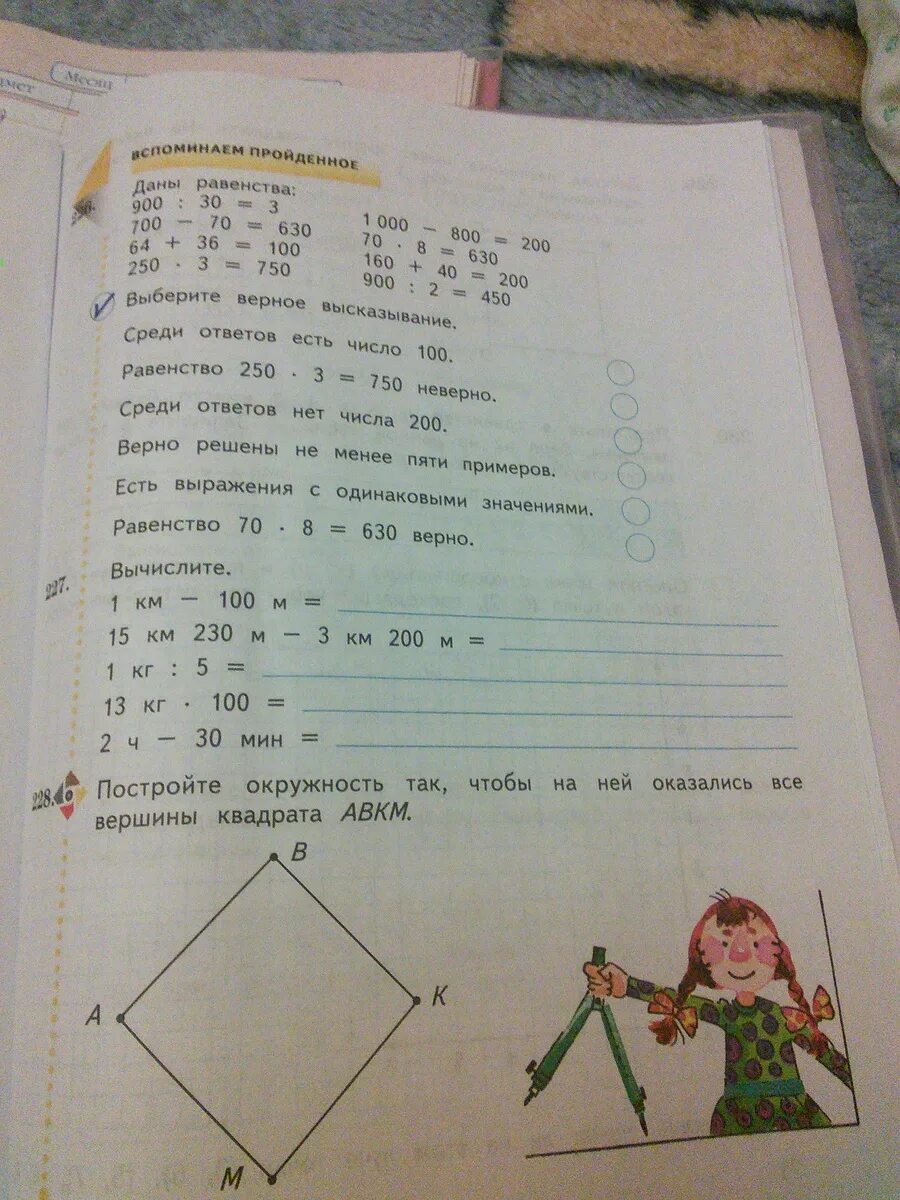 Месяц
ВСПОМИНАЕМ ПРОЙДЕННОЕ
Даны равенства:
900 : 30 = 3
700 − 70 = 630
64 + 36 = 100
250 · 3 = 750
1 000 − 800 = 200
70 · 8 = 630
160 + 40 = 200
900 : 2 = 450
Выберите верное высказывание.
Среди ответов есть число 100.
Равенство 250 · 3 = 750 неверно.
Среди ответов нет числа 200.
Верно решены не менее пяти примеров.
Есть выражения с одинаковыми значениями.
Равенство 70 · 8 = 630 верно.
227. Вычислите.
1 км − 100 м =
15 км 230 м − 3 км 200 м =
1 кг : 5 =
13 кг · 100 =
2 ч − 30 мин =
228. Постройте окружность так, чтобы на ней оказались все
вершины квадрата АВКМ.
В
А
К
М